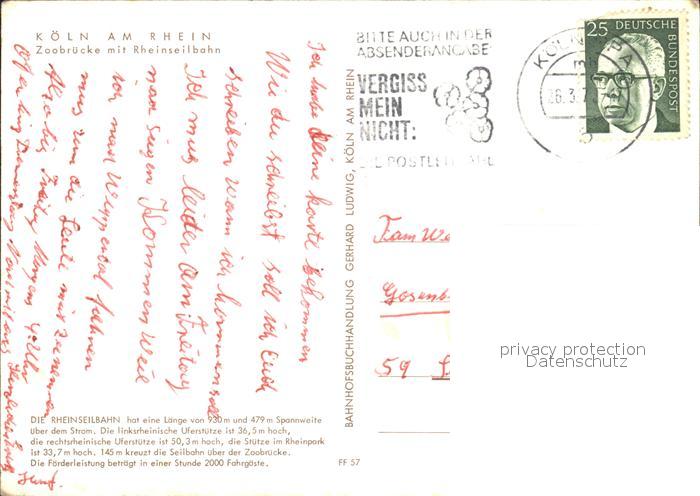 KÖLN AM RHEIN
Zoobrücke mit Rheinseilbahn
Ich habe Deine karte bekommen
Wie du schreibst soll ich Euch
schreiben wann ich kommen soll
Ich mus leider am Freitag
nach Siegen kommen weil
ich nach Wuppertal fahren
mus um die Leute
Also bis Freitag Morgen 9 Uhr
DIE RHEINSEILBAHN hat eine Länge von 930 m und 479 m Spannweite
über dem Strom. Die linksrheinische Uferstütze ist 36,5 m hoch,
die rechtsrheinische Uferstütze ist 50,3 m hoch, die Stütze im Rheinpark
ist 33,7 m hoch. 145 m kreuzt die Seilbahn über der Zoobrücke.
Die Förderleistung beträgt in einer Stunde 2000 Fahrgäste.
FF 57
BAHNHOFSBUCHHANDLUNG GERHARD LUDWIG, KÖLN AM RHEIN
BITTE AUCH IN DER
ABSENDERANGABE
VERGISS
MEIN
NICHT:
DIE POSTLEITZAHL
KÖLN
26.3.7
25 DEUTSCHE
BUNDESPOST
Fam We
Gosenb
59
privacy protection
Datenschutz